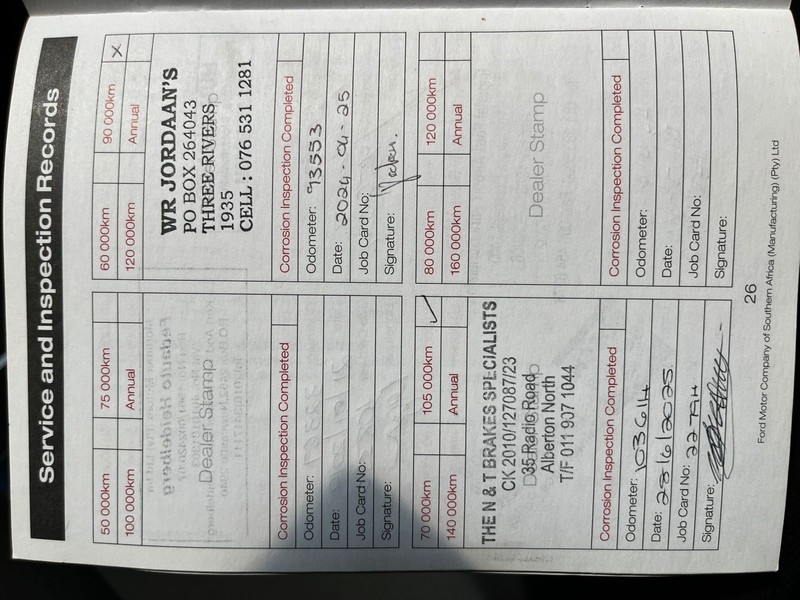 Service and Inspection Records
50 000km 75 000km
100 000km Annual
Dealer Stamp
Corrosion Inspection Completed
Odometer:
Date:
Job Card No:
Signature:
60 000km 90 000km X
120 000km Annual
WR JORDAAN'S
PO BOX 264043
THREE RIVERS
1935
CELL : 076 531 1281
Corrosion Inspection Completed
Odometer: 93553
Date: 2024-04-25
Job Card No:
Signature:
70 000km 105 000km ✓
140 000km Annual
THE N & T BRAKES SPECIALISTS
CK 2010/127087/23
35 Radio Road
Alberton North
T/F 011 907 1044
Corrosion Inspection Completed
Odometer: 103614
Date: 28/6/2025
Job Card No:
Signature:
80 000km 120 000km
160 000km Annual
Dealer Stamp
Corrosion Inspection Completed
Odometer:
Date:
Job Card No:
Signature:
26
Ford Motor Company of Southern Africa (Manufacturing) (Pty) Ltd